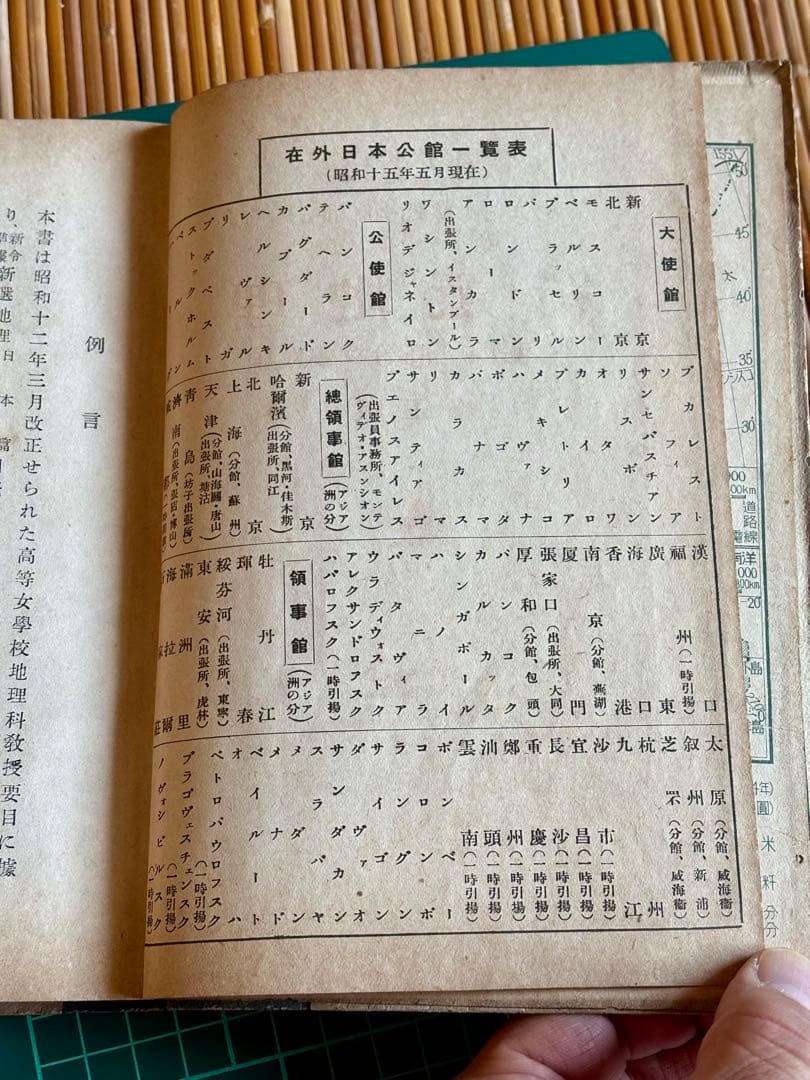 在外日本公館一覽表
(昭和十五年五月現在)
大使館
新京
北京
モスコー
ベルリン
ブラッセル
パリ
ロンドン
ローマ
アンカラ
(出張所、イスタンブール)
ワシントン
リオデジャネイロ
公使館
バンコク
テヘラン
バグダード
カブール
ヘルシンキ
レヴァル
リガ
ブダペスト
ストックホルム
ブカレスト
ソフィア
サンセバスチアン
リスボン
オタワ
カイロ
プレトリア
メキシコ
ハヴァナ
ボゴタ
パナマ
カラカス
リマ
サンティアゴ
ブエノスアイレス
(出張員事務所、モンテヴィデオ・アスンシオン)
總領事館(アジア洲の分)
新京
哈爾濱(分館、黑河・佳木斯 出張所、同江)
北京
上海(分館、蘇州)
天津(分館、山海關・唐山 出張所、塘沽)
青島(坊子出張所)
濟南(出張所、張店・博山)
漢口
福州(一時引揚)
廣東
海口
香港
南京(分館、蕪湖)
厦門
張家口(出張所、大同)
厚和(分館、包頭)
バンコク
カルカッタ
シンガポール
マニラ
ハノイ
バタヴィア
ウラディウォストク
アレクサンドロフスク
ハバロフスク(一時引揚)
領事館(アジア洲の分)
牡丹江
琿春
綏芬河(出張所、東寧)
東安(出張所、虎林)
滿洲里
海拉爾
太原(分館、威海衞)
叙州(分館、新浦)
芝罘(分館、威海衞)
杭州
九江
沙市(一時引揚)
宜昌(一時引揚)
長沙(一時引揚)
重慶(一時引揚)
鄭州(一時引揚)
汕頭(一時引揚)
雲南(一時引揚)
ボンベー
コロンボ
ラングーン
サイゴン
ダヴァオ
サンダカン
スラバヤ
メダン
メナド
ベイルート
オハ
ペトロパウロフスク(一時引揚)
ブラゴヴェスチェンスク(一時引揚)
ノヴォシビルスク(一時引揚)
例言
本書は昭和十二年三月改正せられた高等女學校地理科教授要目に據
り、新令
新選地理日本篇
155
50
45
40
35
30
20
道路
電線
南洋
米
粁